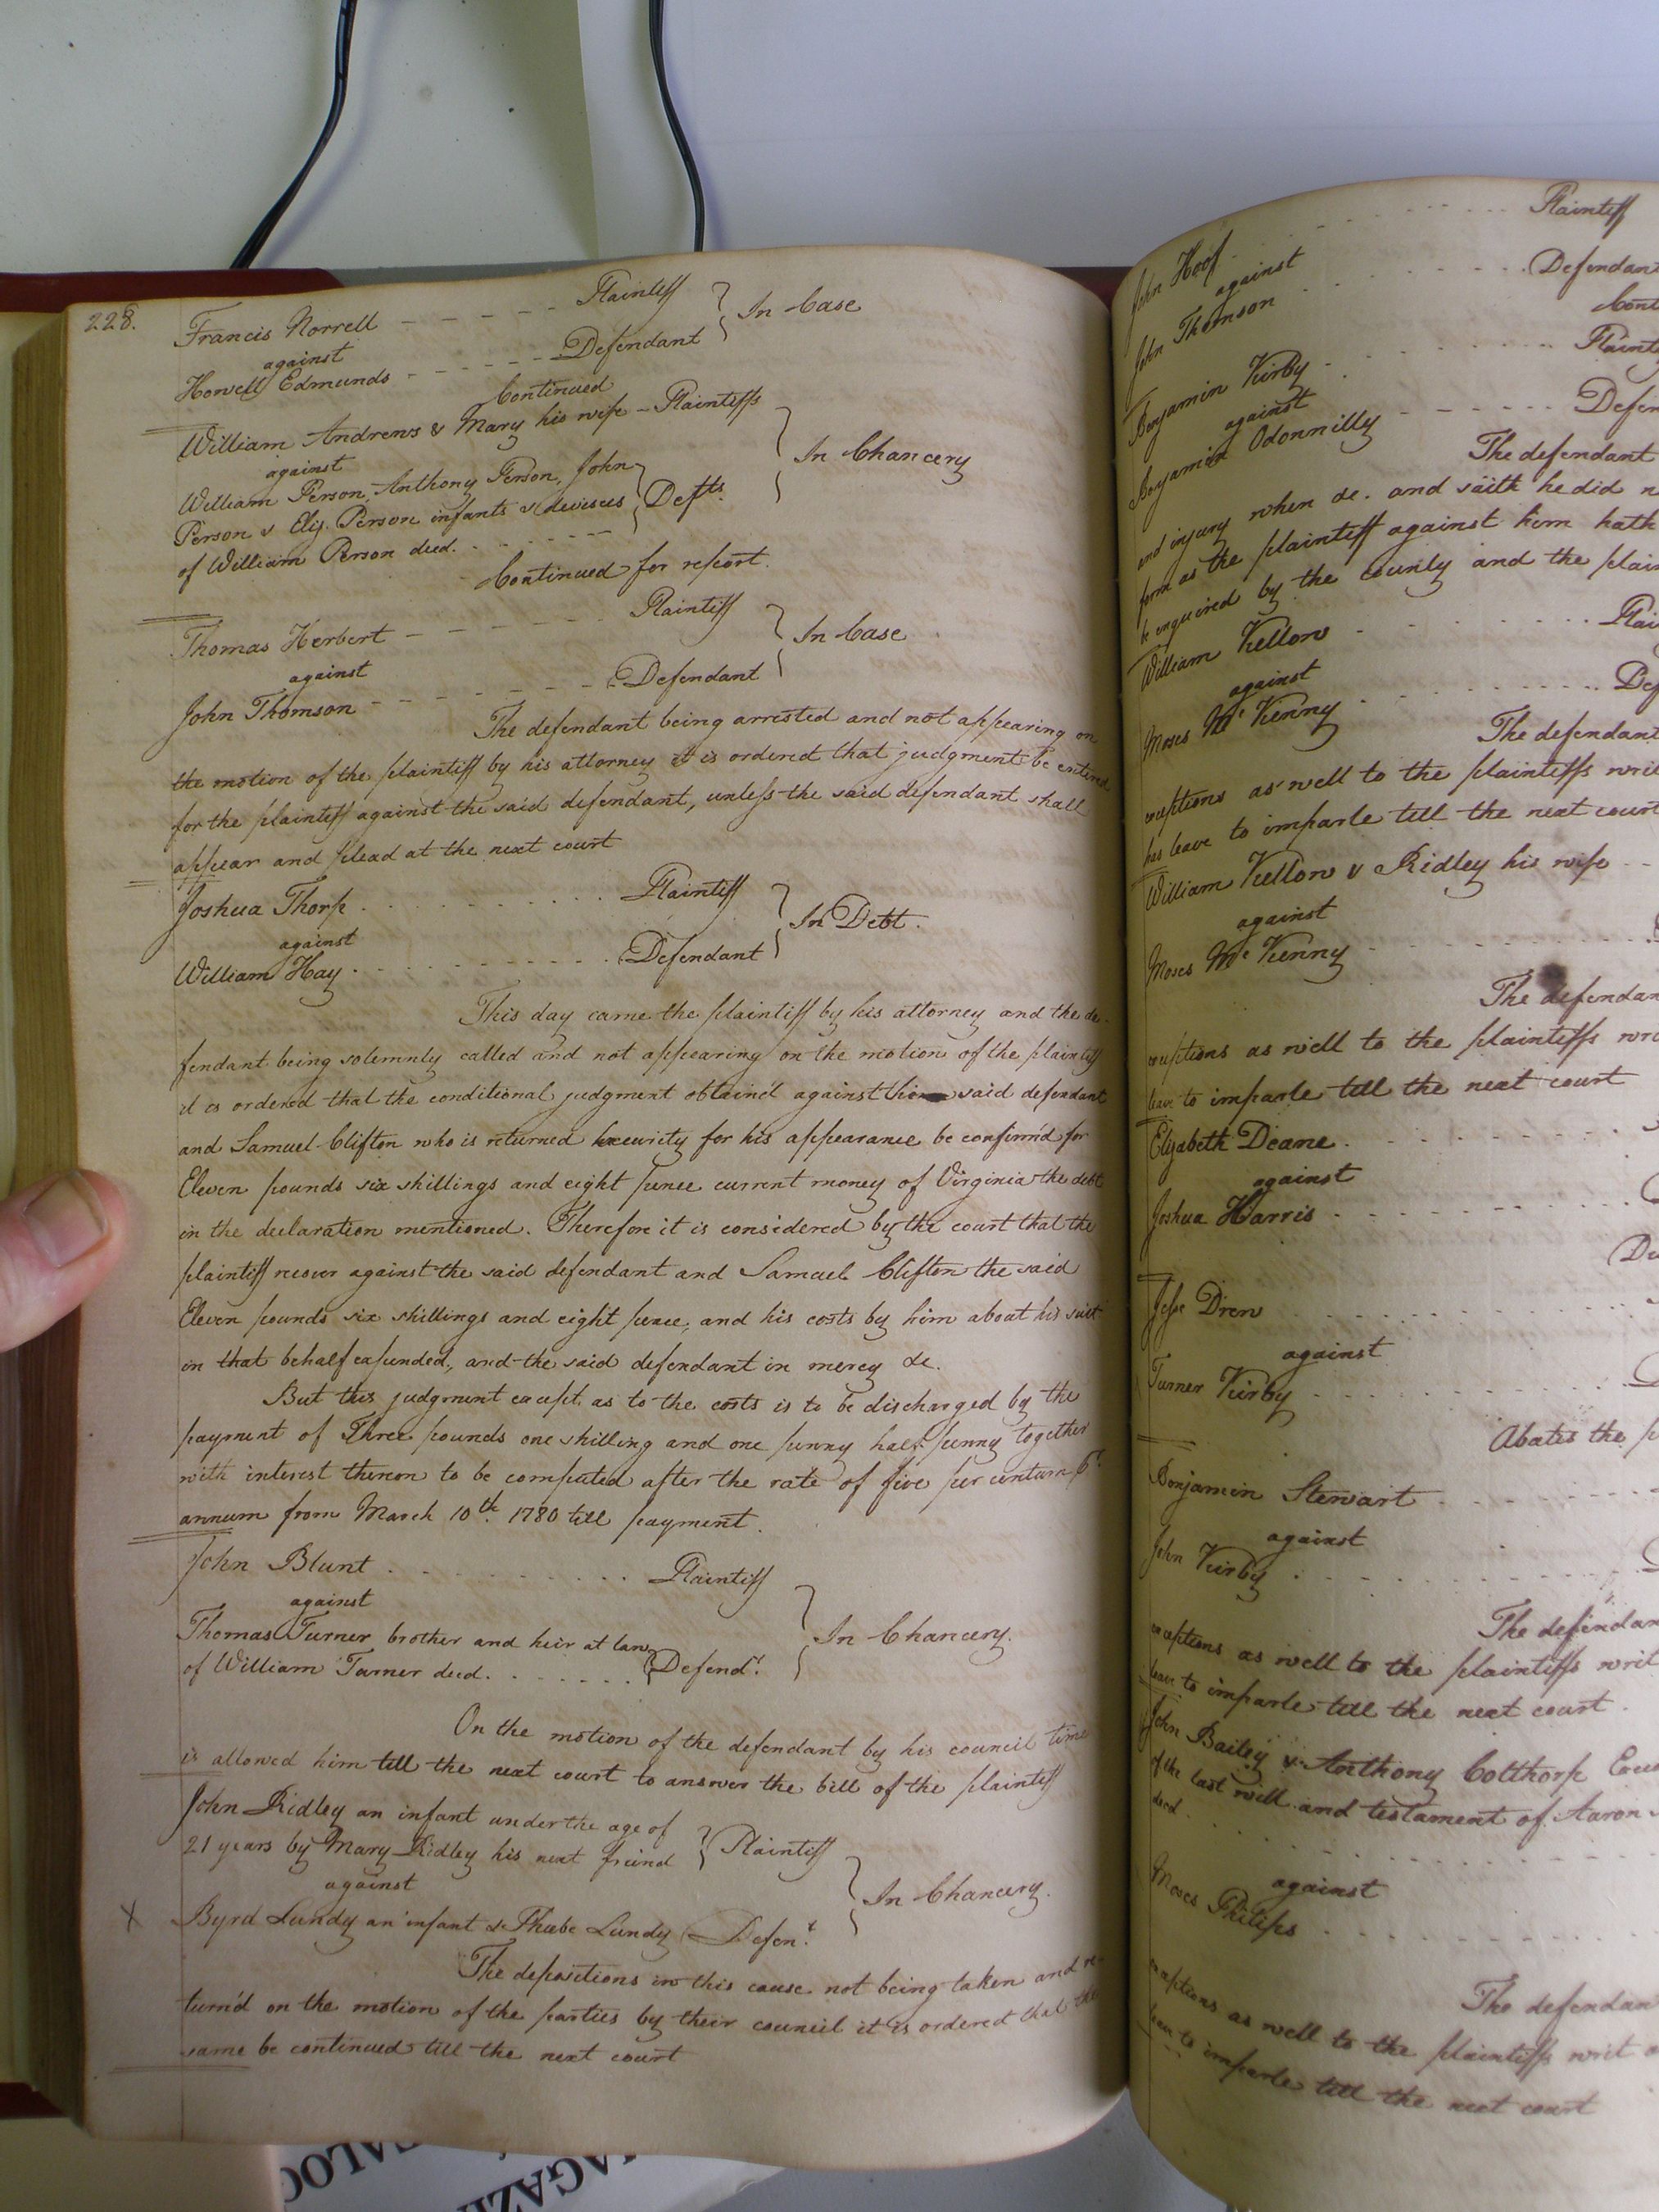 228.
Francis Norrell - - - - - - Plaintiff
against
In Case
Howell Edmunds - - - - - - Defendant
Continued
William Andrews & Mary his wife - Plaintiffs
against
In Chancery
William Person, Anthony Person, John
Person & Eliz. Person infants & devisees
Defts.
of William Person deced. . - - - - - -
Continued for report.
Thomas Herbert - - - - - Plaintiff
against
In Case
John Thomson - - - - - - - Defendant
The defendant being arrested and not appearing on
the motion of the plaintiff by his attorney it is ordered that judgment be entered
for the plaintiff against the said defendant, unless the said defendant shall
appear and plead at the next court
Joshua Thorp . . . . . . . . . . . Plaintiff
against
In Debt.
William Hay . . . . . . . . . . . Defendant
This day came the plaintiff by his attorney and the de-
fendant being solemnly called and not appearing on the motion of the plaintiff
it is ordered that the conditional judgment obtain'd against the said defendant
and Samuel Clifton who is returned security for his appearance be confirm'd for
Eleven pounds six shillings and eight pence current money of Virginia the debt
in the declaration mentioned. Therefore it is considered by the court that the
plaintiff recover against the said defendant and Samuel Clifton the said
Eleven pounds six shillings and eight pence, and his costs by him about his suit
in that behalf expended, and the said defendant in mercy &c.
But this judgment except as to the costs is to be discharged by the
payment of Three pounds one shilling and one penny half penny together
with interest thereon to be computed after the rate of five per centum pr.
annum from March 10th. 1780 till payment.
John Blunt . . . . . . . . . . . Plaintiff
against
In Chancery.
Thomas Turner brother and heir at law
of William Turner deced. . . . . . . Defendt.
On the motion of the defendant by his council time
is allowed him till the next court to answer the bill of the plaintiff
John Ridley an infant under the age of
21 years by Mary Ridley his next freind Plaintiff
against
In Chancery.
X Byrd Lundy an infant & Phebe Lundy Defent.
The depositions in this cause not being taken and re-
turn'd on the motion of the parties by their council it is ordered that the
same be continued till the next court
John Hoof - - - - - - - Plaintiff
against
John Thomson - - - - - . Defendant
Cont
Benjamin Kirby - - - - - - Plaint
against
Benjamin Odonnilly - - - - - - Defen
The defendant
and injury when &c. and saith he did n
form as the plaintiff against him hath
be enquired by the county and the plain
William Kellow - - - - - - Plai
against
Moses McKenny . . . . . . . . Def
The defendant
ceptions as well to the plaintiffs writ
has leave to imparle till the next court
William Kellow & Ridley his wife - -
against
Moses McKenny - - - - - - -
The defendan
ceptions as well to the plaintiffs wri
leave to imparle till the next court
Elizabeth Deane . - - - - - -
against
Joshua Harris . - - - - - - -
Jesse Drew . . . . . . . .
against
Turner Kirby . . . . . . . .
Abates the p
Benjamin Stewart . - - - - -
against
John Kirby . . . . . . . .
The defendan
ceptions as well to the plaintiffs writ
leave to imparle till the next court .
John Bailey & Anthony Colthorp Exec
of the last will and testament of Aaron
deced. . . . . . . .
against
Moses Philips . . . . . . .
The defendan
ceptions as well to the plaintiffs writ
leave to imparle till the next court